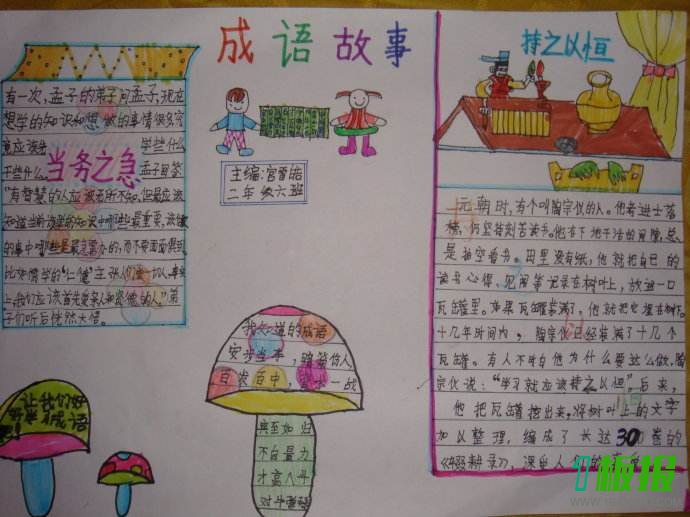 成语故事
主编:宫晋皓
二年级六班
有一次,孟子的弟子问孟子,现在
想学的知识和想做的事情很多,究
竟应该先学些什么
干些什么。孟子回答
当务之急
"有智慧的人应该无所不知,但最应该
知道当前该学的知识中哪些最重要,该做
的事中哪些是最急需办的,而不要面面俱到。
上,我们应该首先爱亲人和贤德的人。"弟
子们听后恍然大悟。
我知道的成语
安步当车,暗箭伤人,
百发百中,
宾至如归
不自量力
才高八斗
让我们好
成语
持之以恒
元朝时,有个叫陶宗仪的人。他考进士落
榜,仍坚持刻苦读书。他在下地干活的间隙,总
是抽空看书。田里没有纸,他就把自己的
读书心得、见闻等记录在树叶上,放进一口
瓦罐里。如果瓦罐装满了,他就把它埋在树下。
十几年时间内,陶宗仪已经装满了十几个
瓦罐。有人不明白他为什么要这么做,陶
宗仪说:"学习就应该持之以恒"。后来,
他把瓦罐挖出来,将树叶上的文字
加以整理,编成了长达30卷的
《辍耕录》,深受人们的
板报